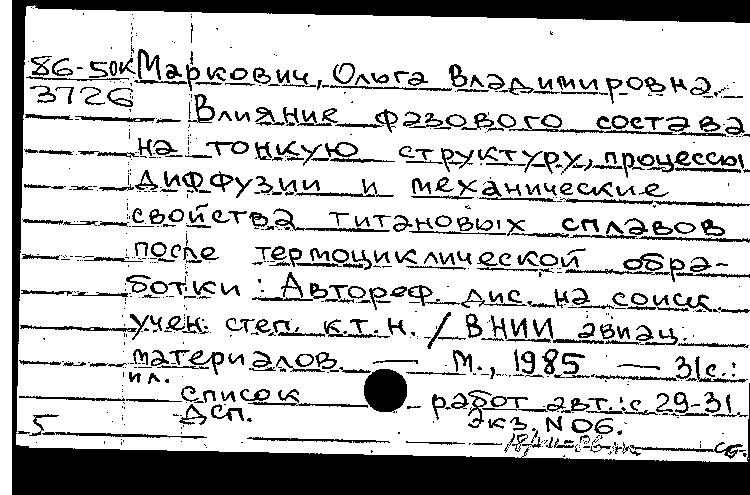 86-50к Маркович, Ольга Владимировна.
3726 Влияние фазового состава
на тонкую структуру, процессы
диффузии и механические
свойства титановых сплавов
после термоциклической обра-
ботки : Автореф. дис. на соиск.
учен. степ. к.т.н. / ВНИИ авиац.
материалов. — М., 1985 — 31с.:
ил.
список работ авт.: с. 29-31
Дсп. Экз. N 06.
5